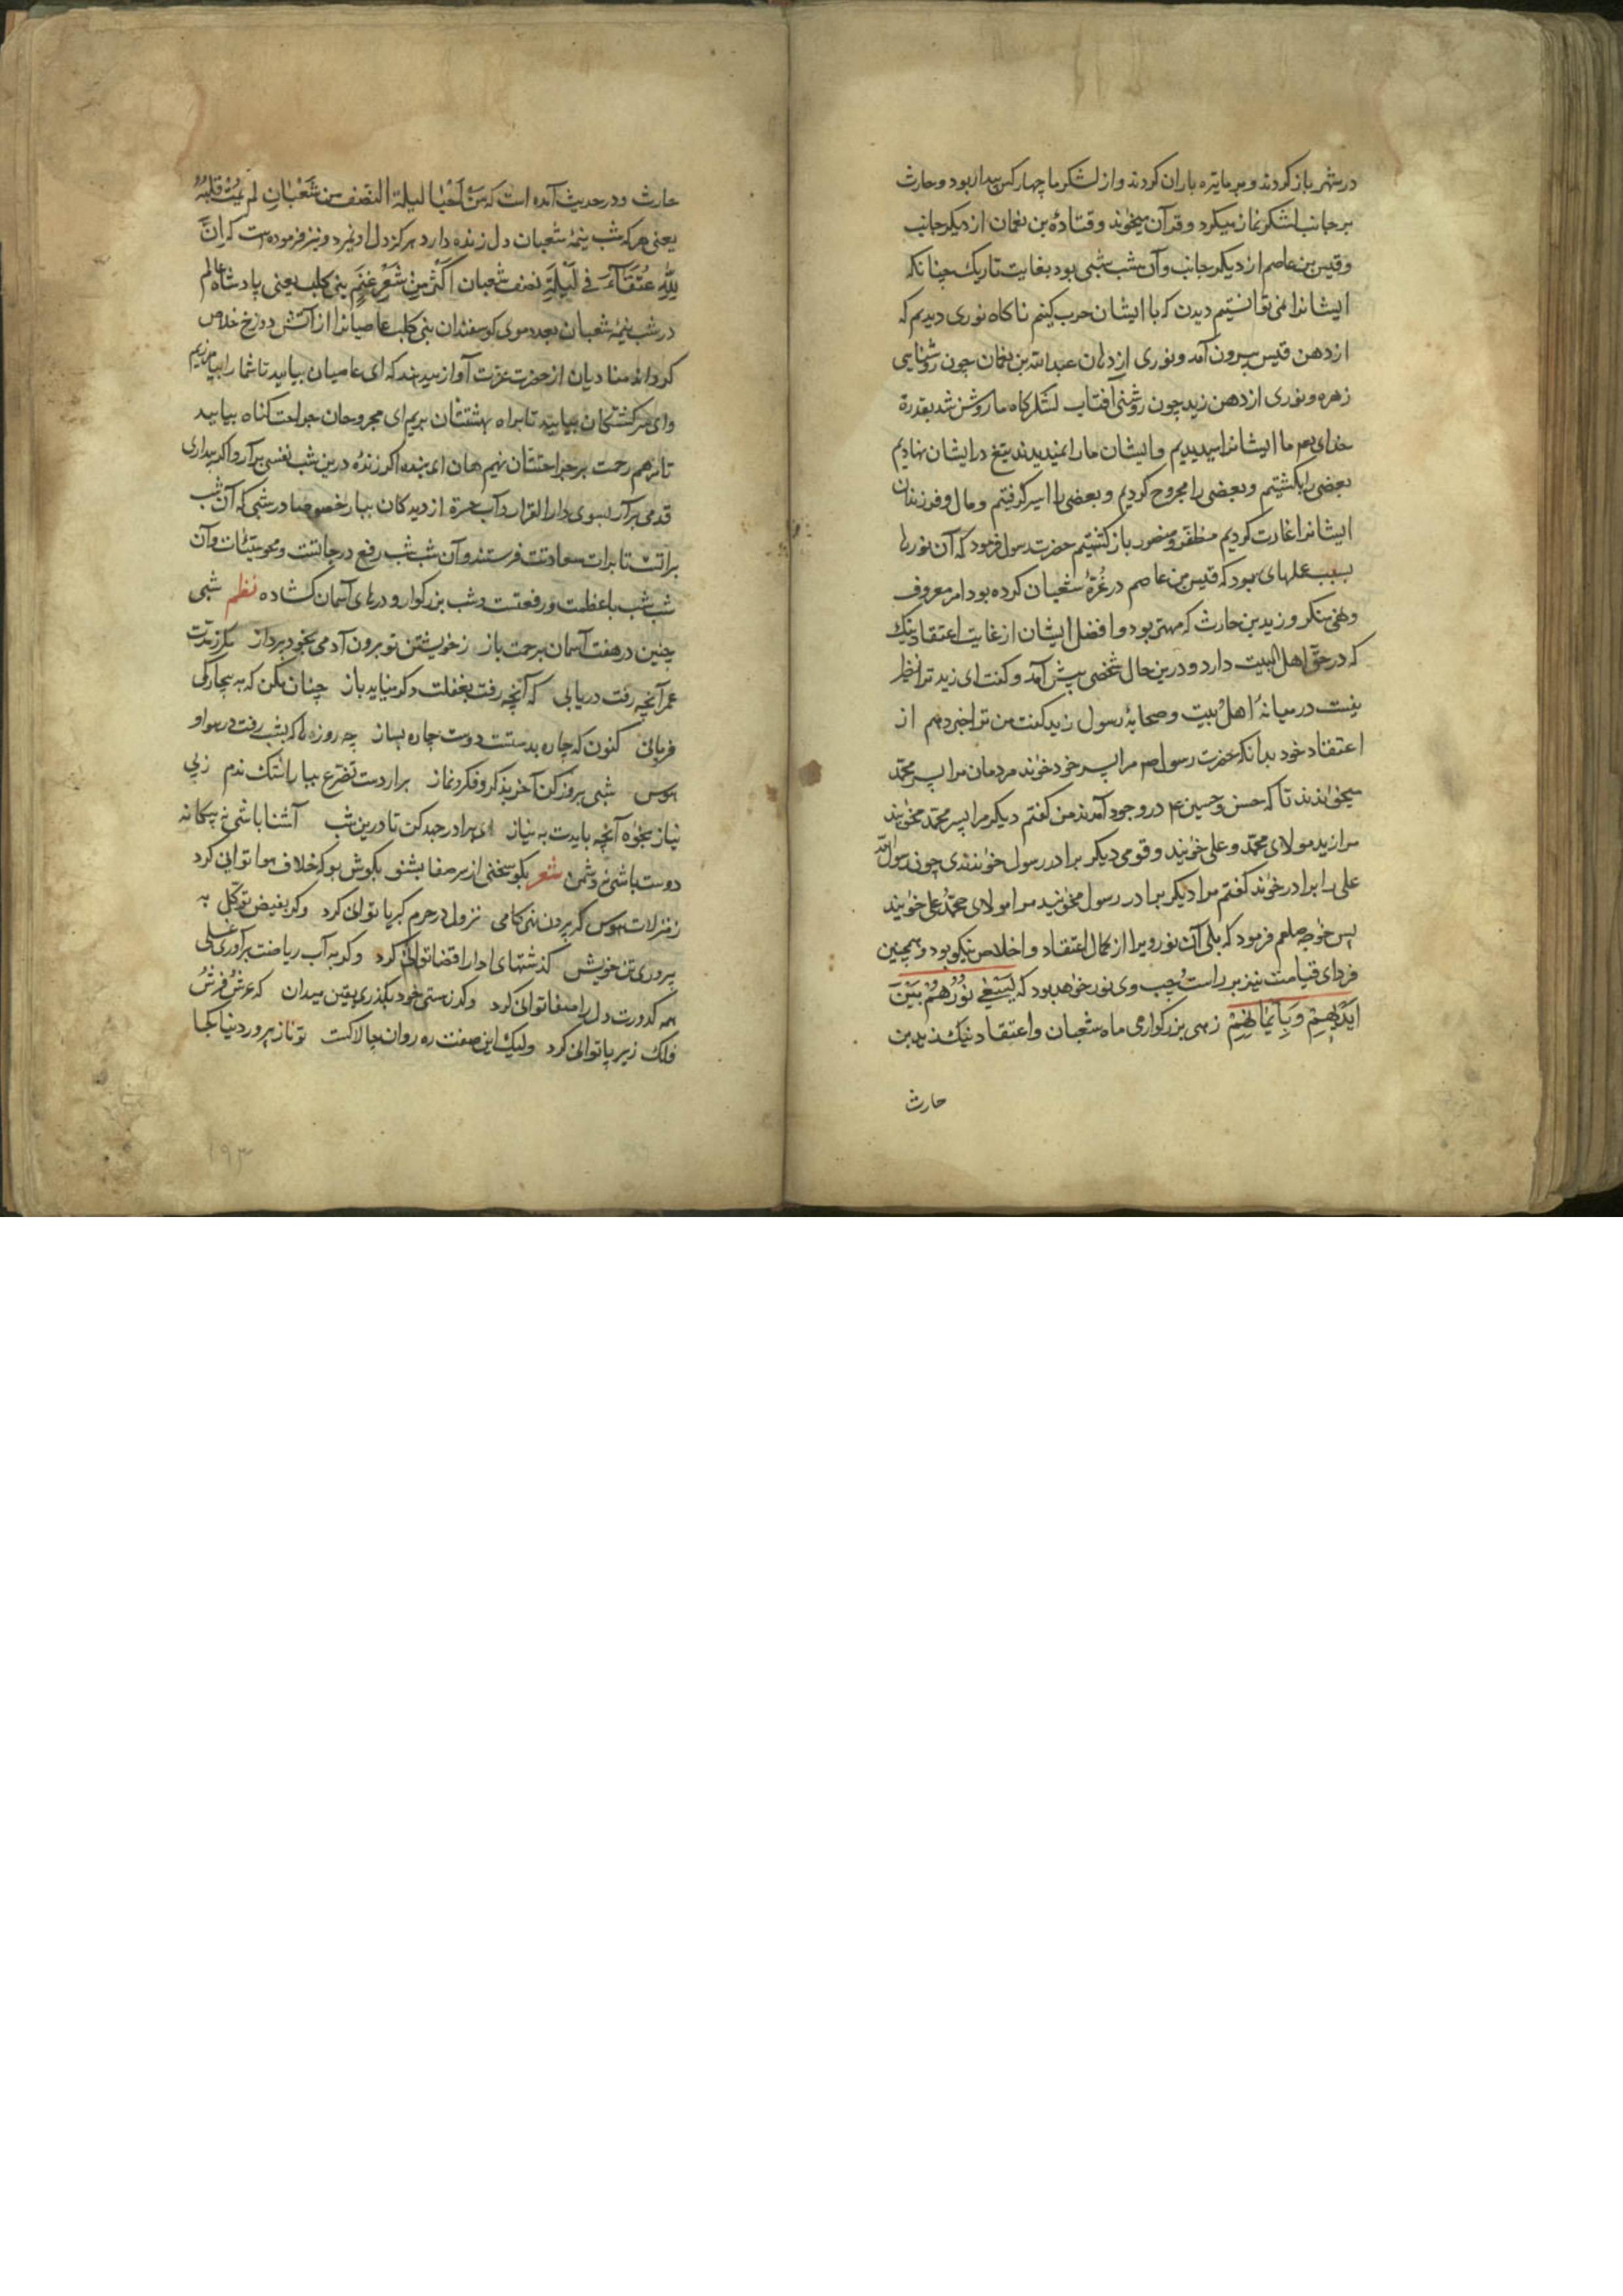 در شهر باز کردند و بر ما تیره باران کردند و از لشکر ما چهار کس بیدار بود و حارث
بر جانب لشکر نماز میکرد و قرآن میخواند و قتادهٔ بن نعمان از دیکر جانب
و قیس بن عاصم از دیکر جانب و آن شب شبی بود بغایت تاریک چنانکه
ایشانرا نمی توانستیم دیدن که با ایشان حرب کنیم ناکاه نوری دیدیم که
از دهن قیس بیرون آمد و نوری از دهان عبدالله بن نعمان چون روشنایی
زهره و نوری از دهن زید چون روشنی آفتاب لشکرکاه ما روشن شد بقدرة
خدای ما ایشانرا میدیدیم و ایشان ما را نمیدیدند تیغ در ایشان نهادیم
بعضی را بکشتیم و بعضی را مجروح کردیم و بعضی را اسیر کرفتیم و مال و فرزندان
ایشانرا غارت کردیم مظفر و منصور باز کشتیم حضرت رسول فرمود که آن نورها
بسبب عملهای بود که قیس بن عاصم در غُرّهٔ شعبان کرده بود امر معروف
و نهی منکر و زید بن حارث که مهتر بود و افضل ایشان از غایت اعتقاد نیک
که در حق اهل البیت دارد و درین حال شخصی پیش آمد و کفت ای زید ترا نظیر
نیست در میانهٔ اهل بیت و صحابهٔ رسول زید کفت من ترا خبر دهم از
اعتقاد خود بدانکه حضرت رسول صم مرا پسر خود خواند مردمان مرا پسر محمّد
میخواندند تا که حسن و حسین ع در وجود آمدند من کفتم دیکر مرا پسر محمّد مخوانید
مرا زید مولای محمّد و علی خوانید و قومی دیکر برادر رسول خواندندی چون رسول الله
علی را برادر خواند کفتم مرا دیکر برادر رسول مخوانید مرا مولای محمّد و علی خوانید
پس خواجه صلعم فرمود که بلی آن نور ویرا از کمال اعتقاد و اخلاص نیکو بود و همچنین
فردای قیامت نیز بر راست و چپ وی نور خواهد بود که یَسْعٰی نُوْرُهُمْ بَیْنَ
اَیْدِیْهِمْ وَ بِاَیْمَانِهِمْ زهی بزرکواری ماه شعبان و اعتقاد نیک زید بن
حارث
حارث و در حدیث آمده است که مَنْ اَحْیَا لیلة النّصف من شَعْبَانِ لم یَمُتْ قَلْبُهُ
یعنی هر که شب نیمهٔ شعبان دل زنده دارد هرکز دل او نمیرد و نیز فرموده است که اِنَّ
لِلّٰهِ عُتَقَآءَ فی لَیْلَةِ نصف شعبان اَکْثَرُ مِنْ شَعْرِ غَنَمِ بنی کلب یعنی پادشاه عالم
در شب نیمهٔ شعبان بعدد موی کوسفندان بنی کلب عاصیانرا از آتش دوزخ خلاص
کرداند منادیان از حضرت عزت آواز میدهند که ای عاصیان بیایید تا شما را بیامرزیم
وای سرکشتکان بیایید تا براه بهشتتان بریم ای مجروحان جراحت کناه بیایید
تا مرهم رحمت بر جراحتتان نهیم هان ای بنده اکر زندهٔ درین شب نفسی برآر و اکر بیداری
قدمی برآر بسوی دار القرار و آب حسرة از دیدکان ببار خصوصا در شبی که آن شب
براتست تا برات سعادتت فرستند و آن شب شب رفع درجاتست و محو سیّئات و آن
شب شب با عظمت و رفعتست و شب بزرکوار و درهای آسمان کشاده نظم شبی
چنین در هفت آسمان برحمت باز ز خویشتن تو برون آدمی بخود پرداز مکر ز مدّت
عمر آنچه رفت دریابی که آنچه رفت بغفلت دکر نیاید باز چنان مکن که به بیچارکی
فرمانی کنون که چاره بدستست دوست چاره بساز چه روزها که بشب رفت در هوا و
هوس شبی بروز کن آخر بذکر و فکر و نماز برار دست تضرع ببار اشک ندم ز بی
نیاز بخواه آنچه بایدت به نیاز ای برادر جهد کن تا درین شب آشنا باشی نه بیکانه
دوست باشی نه دشمن شعر بکو سخنی از سر صفا بشنو بکوش بو که خلاف هوا توانی کرد
ز منزلات هوس کر برون نهی کامی نزول در حرم کبریا توانی کرد وکر بفیض توکّل به
پروری تن خویش کذشتهای ادا را قضا توانی کرد وکر به آب ریاضت برآوری غسلی
همه کدورت دل را صفا توانی کرد وکر ز هستی خود بکذری یقین میدان که عرش و فرش
فلک زیر پا توانی کرد ولیک این صفت ره روان چالاکست تو ناز پرورد دنیا کجا
۱۹۳